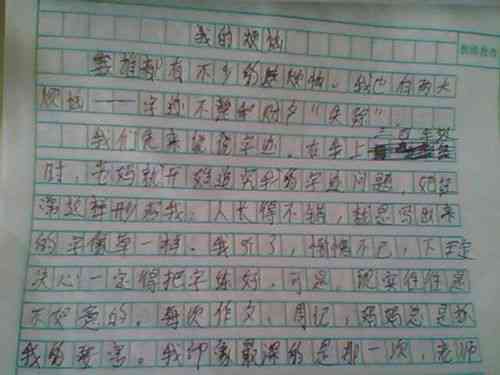 我的烦恼
谁都有不少的烦恼。我也有两大
烦恼——字迹不整和财产“失踪”
我们先来说说字迹。在我上二年级
时，妈妈就开始追究我的字迹问题，她经
常这样形容我：人长得不错，就是写出来
的字像草一样。我听了，惭愧不已，下定
决心一定得把字练好。可是，现实往往是
不如意的。每次作文、周记，妈妈总是
我的字。我印象最深的是那一次，老师